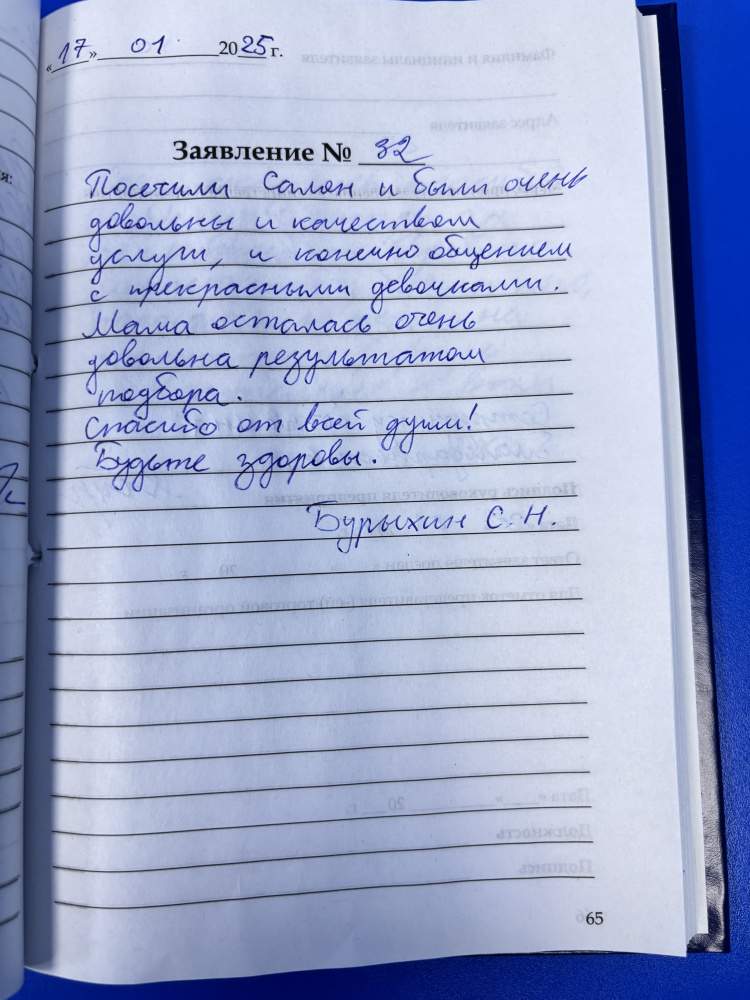 «17» 01. 2025 г.
Заявление № 32
Посетили Салон и были очень
довольны и качеством
услуги, и конечно общением
с прекрасными девочками.
Мама осталась очень
довольна результатом
подбора.
Спасибо от всей души!
Будьте здоровы.
Бурыхин С. Н.
65